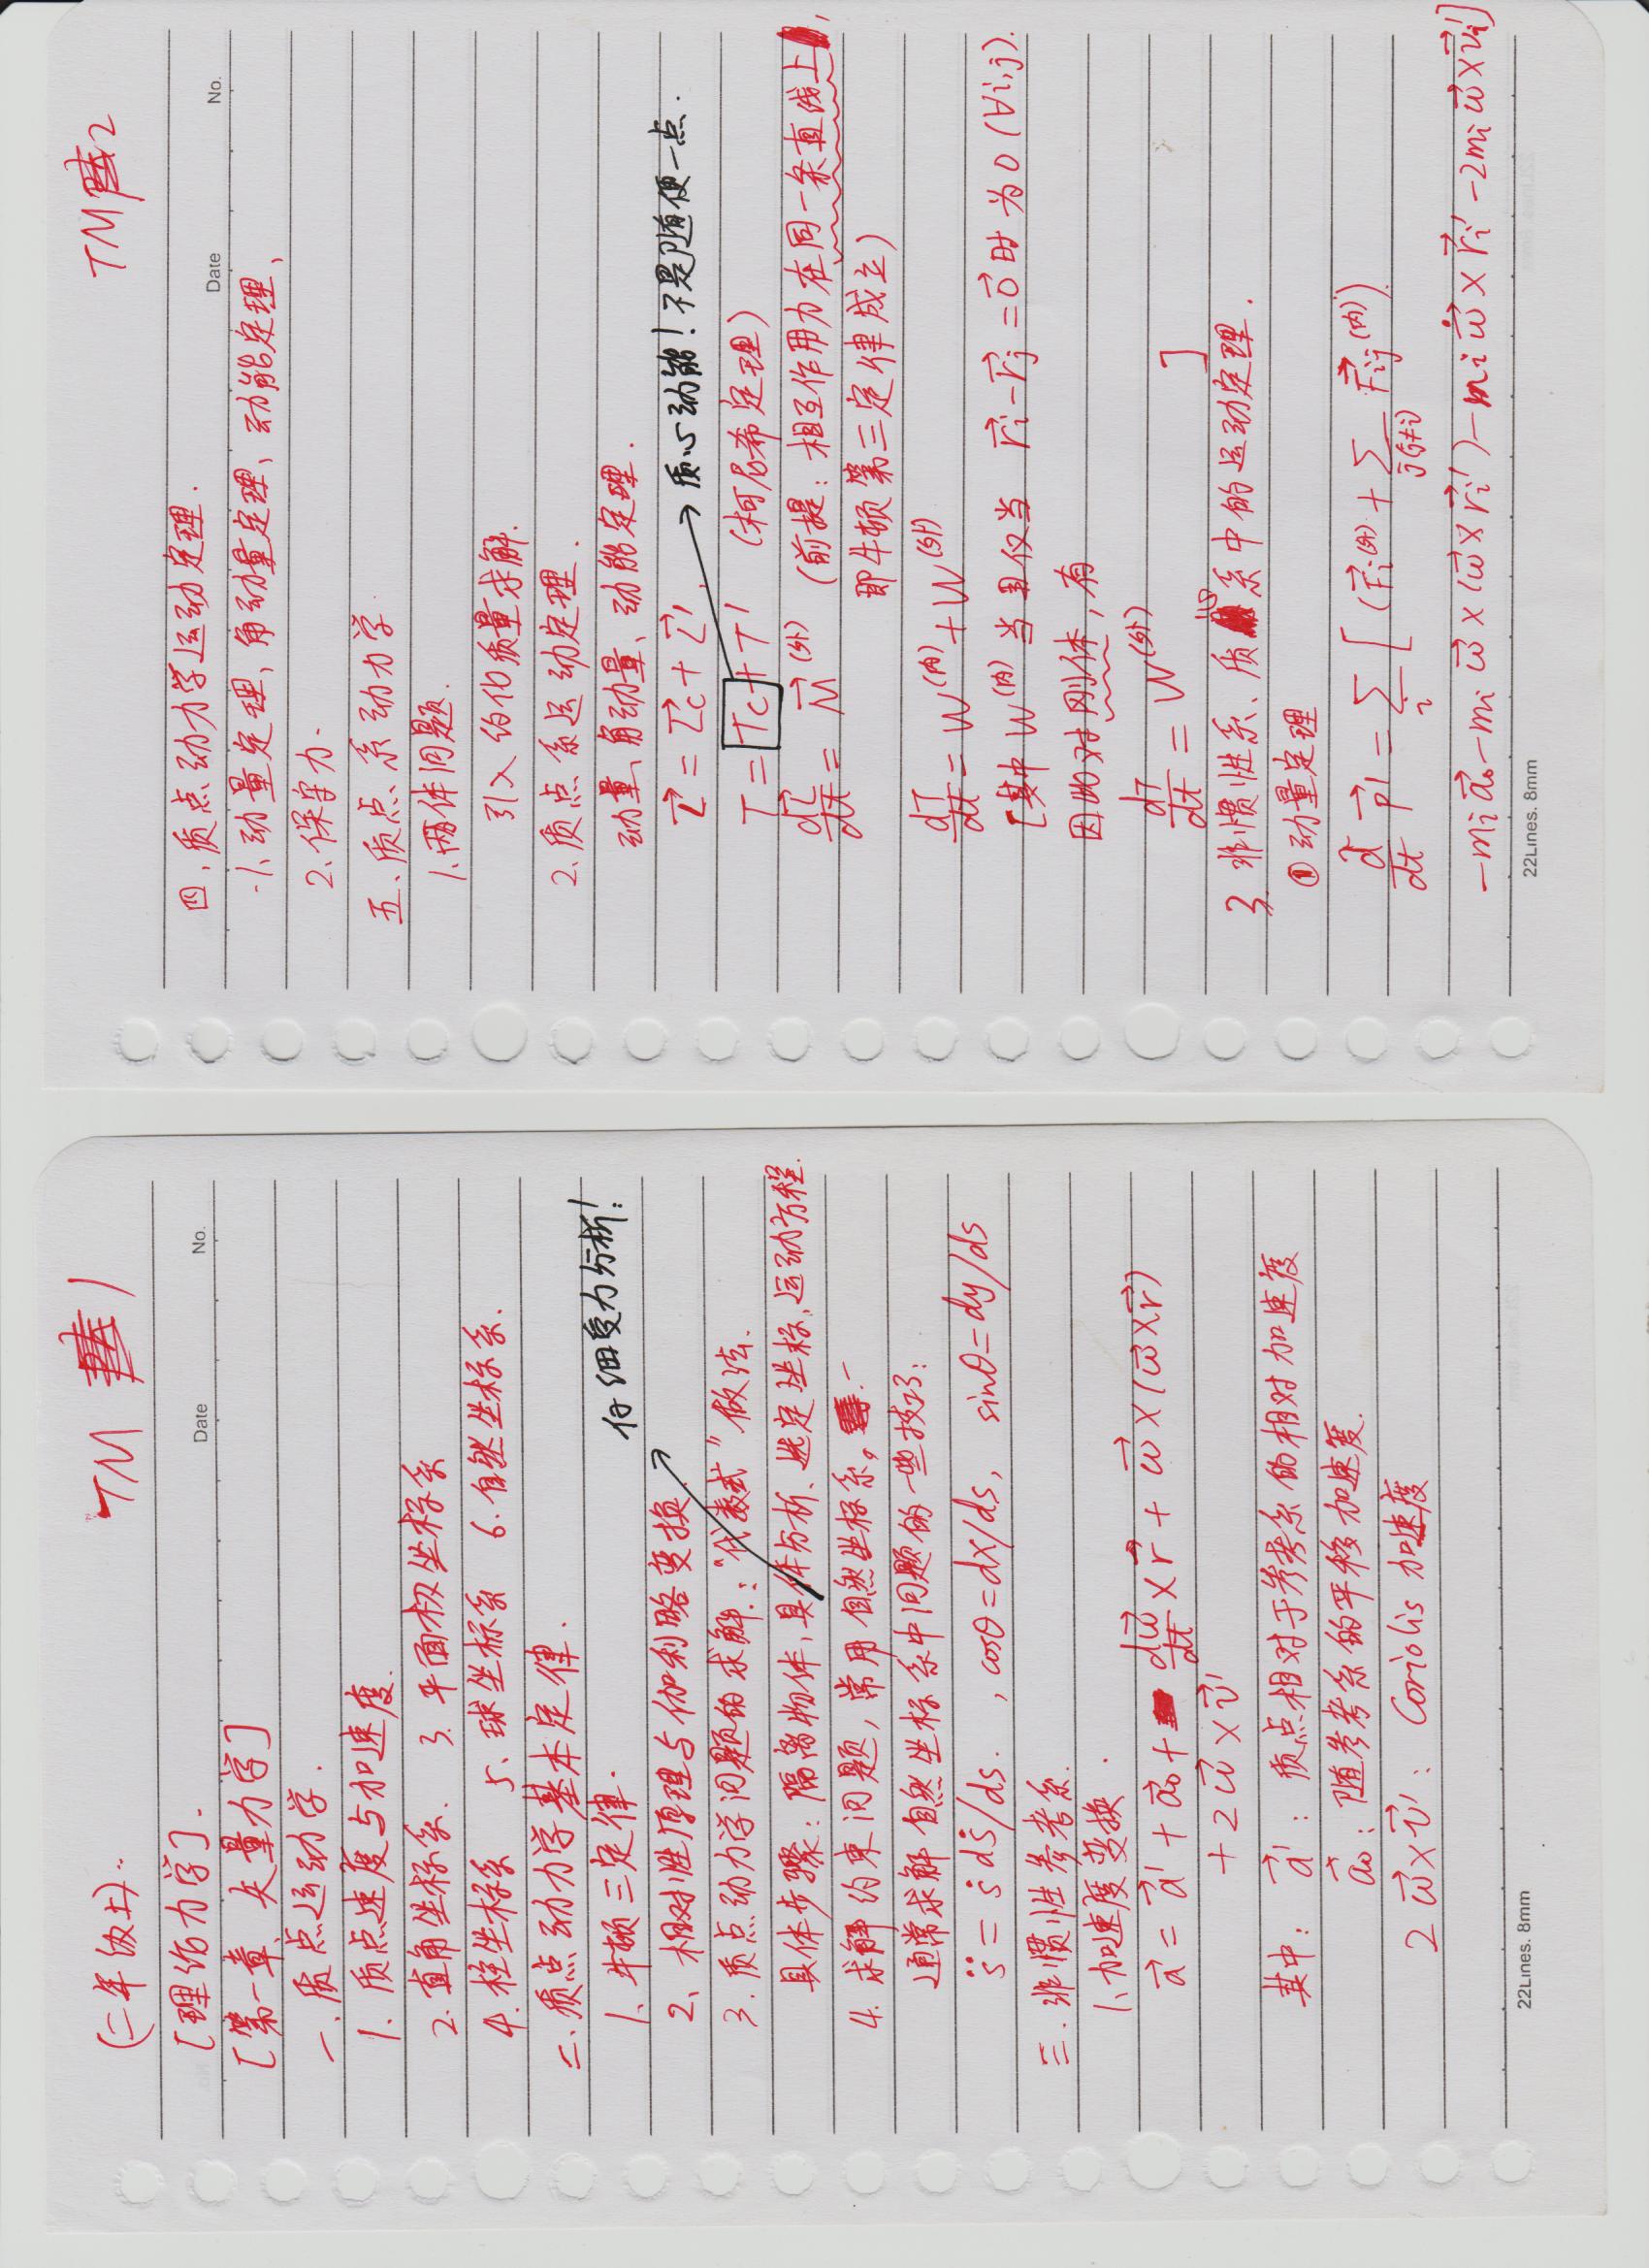 (二年级上)..
TM 1
[理论力学].
Date No.
[第一章、矢量力学]
一.质点运动学.
1. 质点速度与加速度.
2. 直角坐标系. 3. 平面极坐标系
4. 柱坐标系 5、球坐标系 6.自然坐标系.
二.质点动力学基本定律.
1、牛顿三定律.
仔细受力分析!
2、相对性原理与伽利略变换.
3. 质点动力学问题的求解.:“代表式”做法.
具体步骤:隔离物体,具体分析、选定坐标,运动方程.
4. 求解约束问题,常用自然坐标系。
通常求解自然坐标系中问题的一些技巧:
s̈ = ṡ dṡ/ds. , cosθ=dx/ds, sinθ=dy/ds
三.非惯性参考系.
1、加速度变换.
a⃗ = a⃗' + a⃗₀ + dω⃗/dt × r⃗ + ω⃗ × (ω⃗×r⃗)
+ 2ω⃗ × v⃗'
其中: a⃗': 质点相对于参考系的相对加速度
a⃗₀: 随参考系的平移加速度.
2ω⃗×v⃗': Coriolis 加速度
22Lines. 8mm
TM 2
四.质点动力学运动定理.
Date No.
1、动量定理、角动量定理、动能定理、
2、保守力.
五、质点系动力学.
1.两体问题.
引入约化质量求解.
2、质点系运动定理.
动量、角动量、动能定理.
L⃗ = L⃗c + L⃗'.
质心动能!不是随便一点.
T = Tc + T' (柯尼希定理)
dL⃗/dt = M⃗^(外) (前提:相互作用力在同一条直线上,
即牛顿第三定律成立)
dT/dt = W^(内) + W^(外)
[其中 W^(内) 当且仅当 r⃗i - r⃗j = 0⃗ 时为0 (∀i,j).
因此对刚体,有
dT/dt = W^(外) ]
3. 非惯性系、质心系中的运动定理.
① 动量定理
d̃/dt p⃗' = ∑i [ (F⃗i^(外) + ∑j(j≠i) F⃗ij^(内))
-mi a⃗₀ - mi ω⃗ × (ω⃗ × r⃗i') - mi ω⃗̇ × r⃗i' - 2mi ω⃗ × v⃗i']
22Lines. 8mm